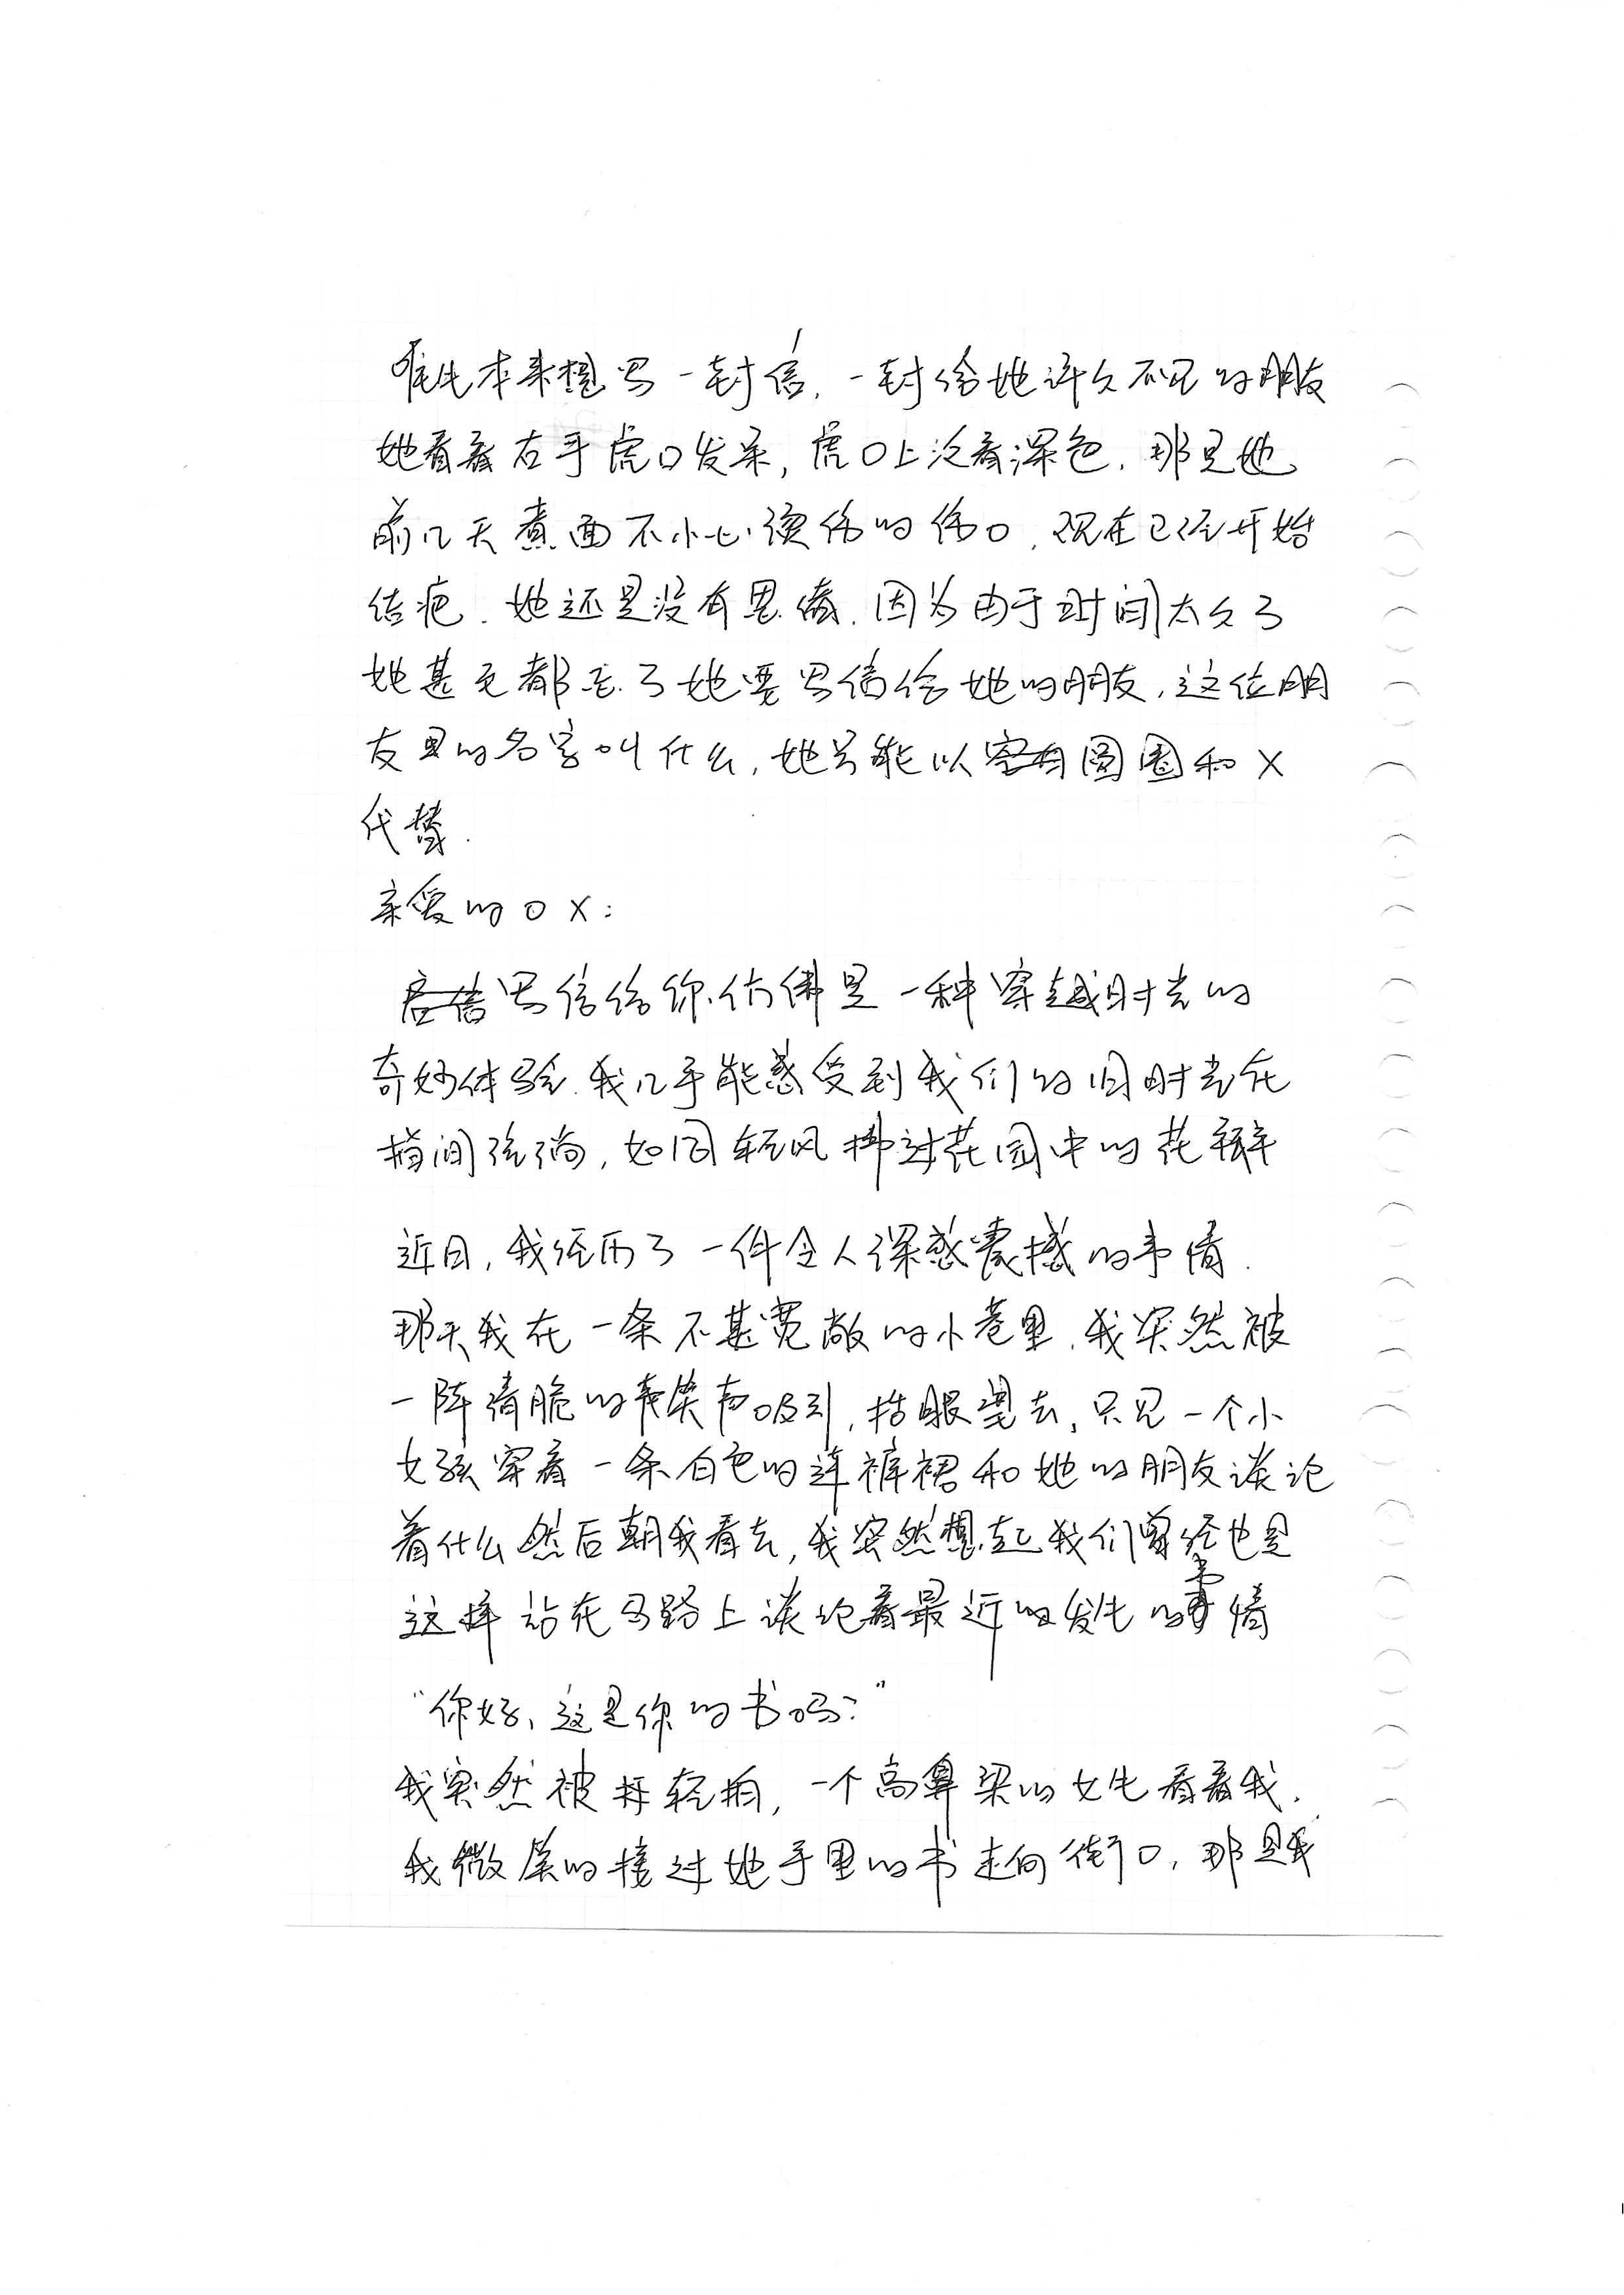 本来想写一封信，一封给她许久不见的朋友
她看着右手虎口发呆，虎口上泛着深色，那是她
前几天煮面不小心烫伤的伤口，现在已经开始
结疤，她还是没有思绪，因为由于时间太久了
她甚至都忘了她要写信给她的朋友，这位朋
友里的名字叫什么，她只能以圆圈和X
代替.
亲爱的O X：
写信给你仿佛是一种穿越时光的
奇妙体验，我几乎能感受到我们的旧时光在
指间流淌，如同轻风拂过花园中的花瓣
近日，我经历了一件令人深感震撼的事情.
那天我在一条不甚宽敞的小巷里，我突然被
一阵清脆的笑声吸引，抬眼望去，只见一个小
女孩穿着一条白色的连裤裙和她的朋友谈论
着什么然后朝我看去，我突然想起我们曾经也是
这样站在马路上谈论着最近的发生的事情
“你好，这是你的书吗？”
我突然被轻拍，一个高鼻梁的女生看着我.
我微笑的接过她手里的书走向街口，那是我